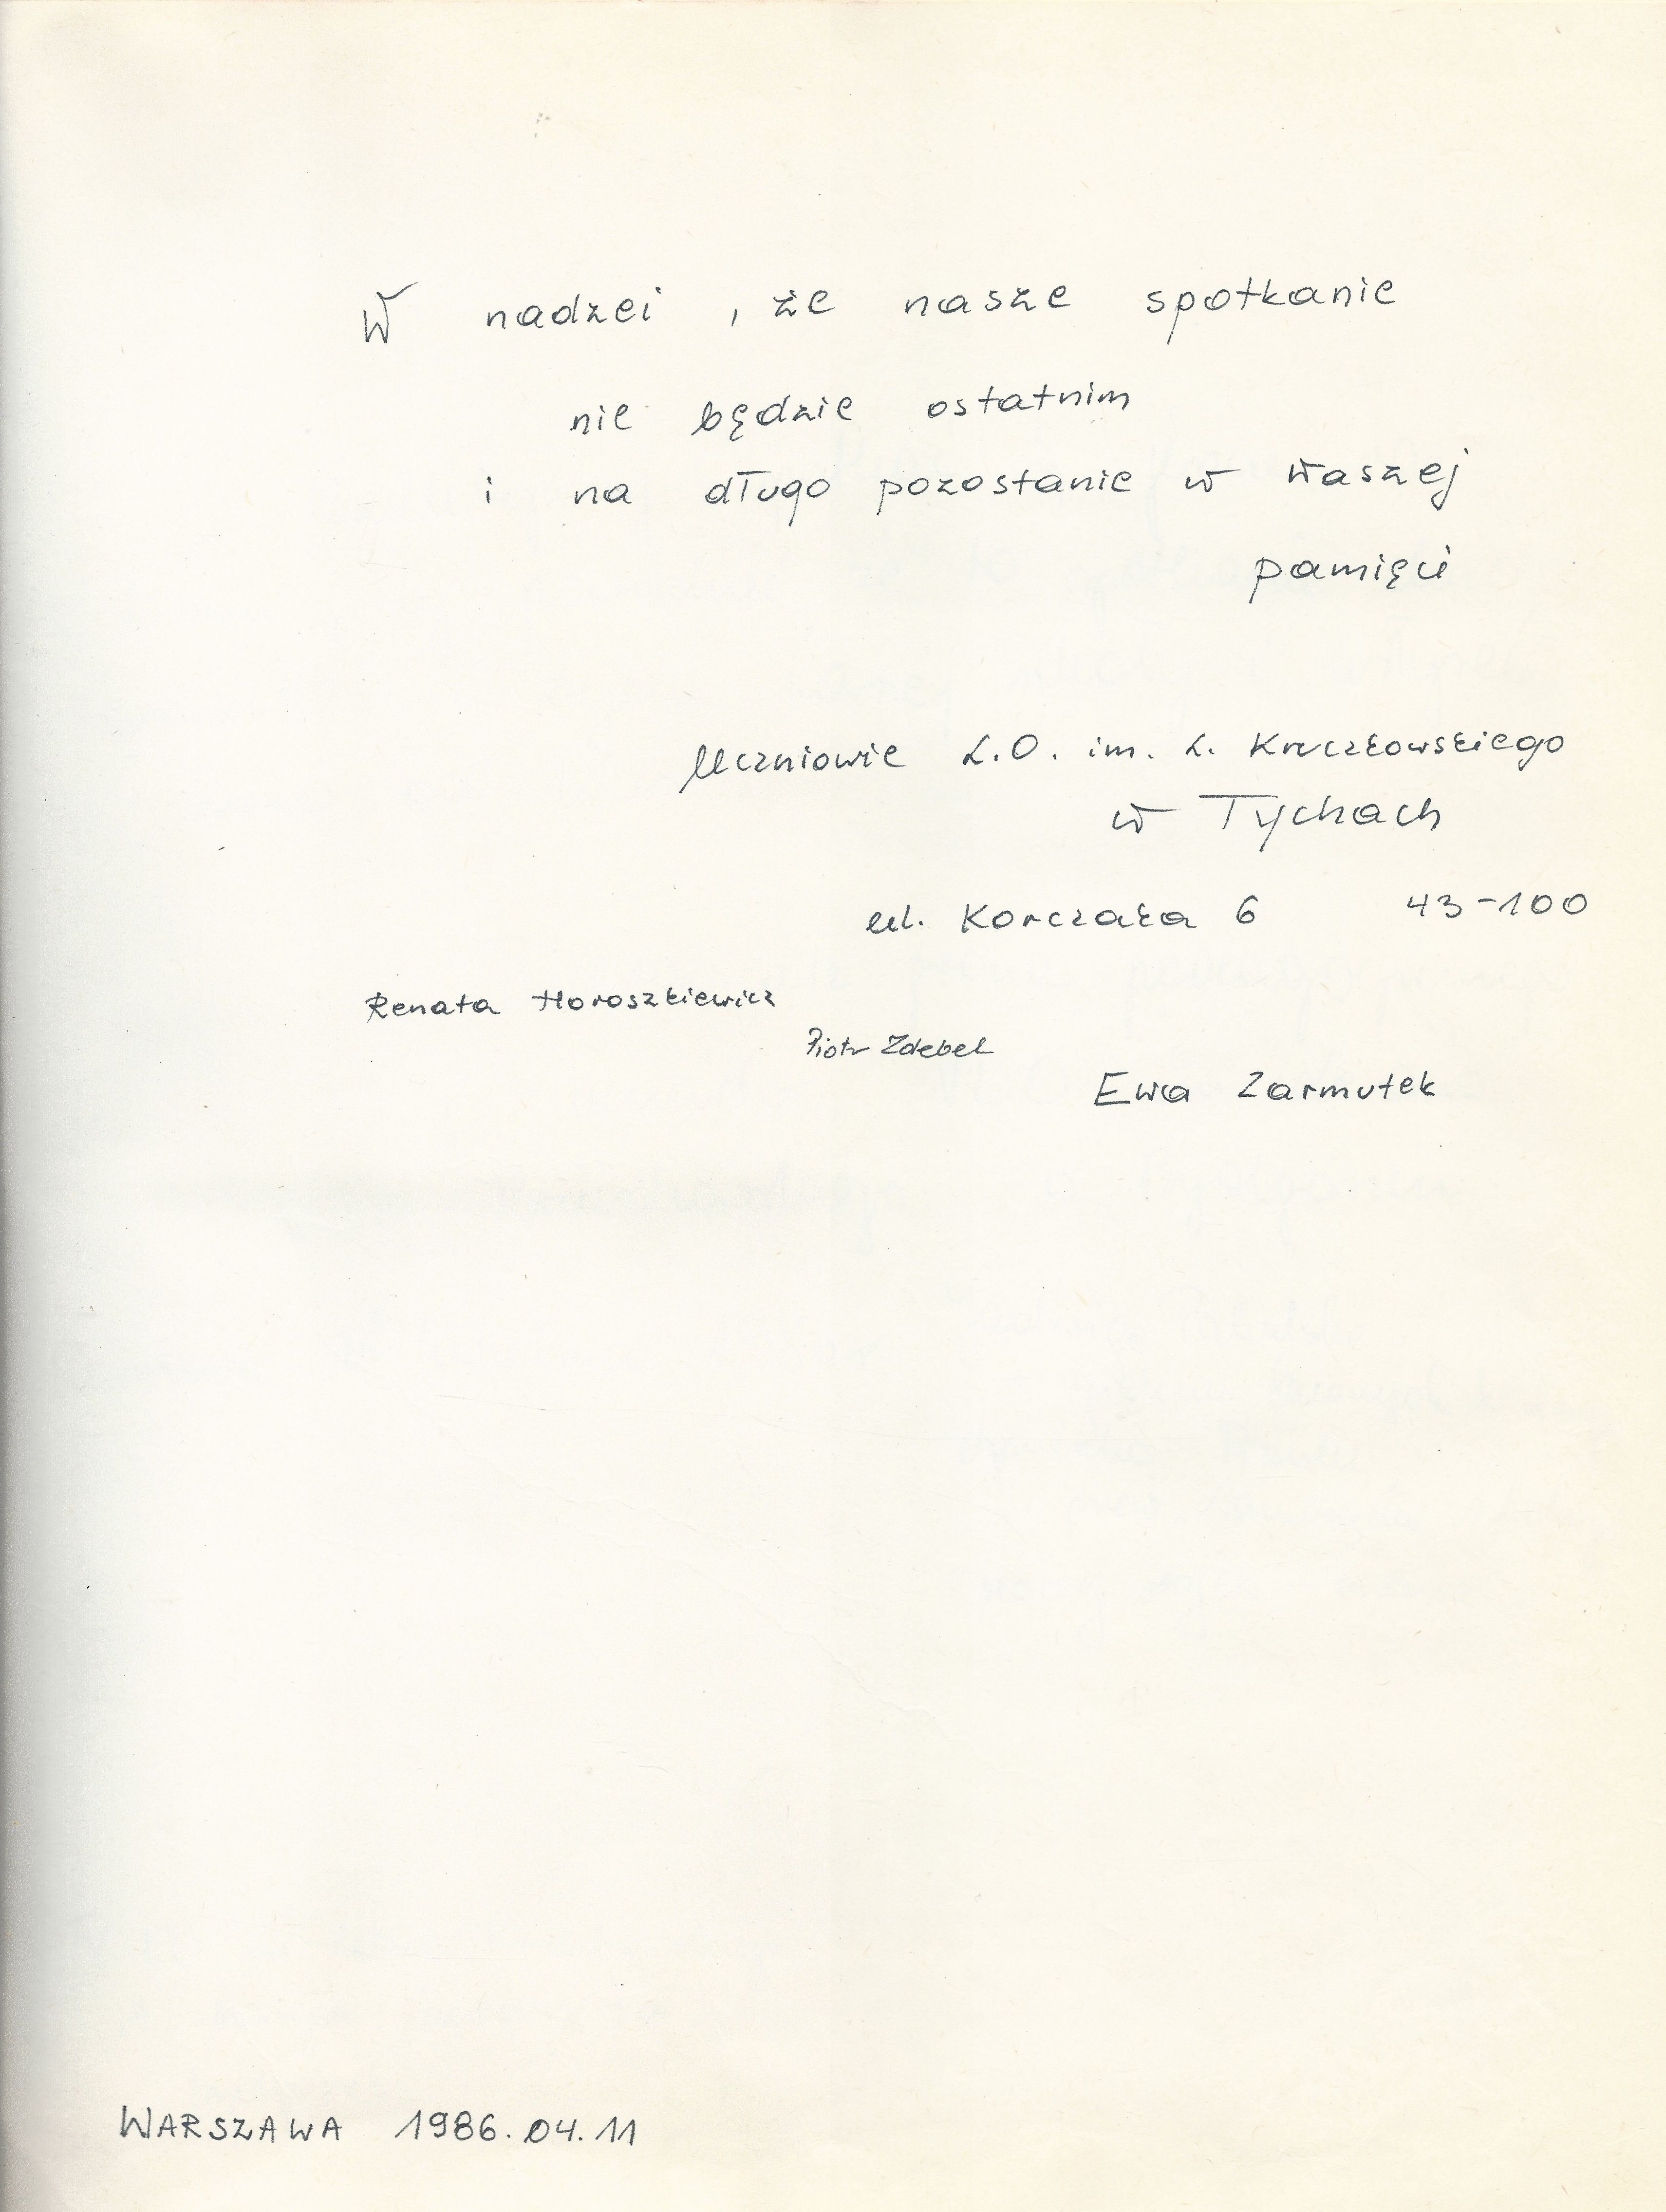 W nadzei, że nasze spotkanie
nie będzie ostatnim
i na długo pozostanie w waszej
pamięci
Uczniowie L.O. im. L. Kruczkowskiego
w Tychach
ul. Korczaka 6 43-100
Renata Horoszkiewicz
Piotr Zdebel
Ewa Zarmutek
WARSZAWA 1986.04.11